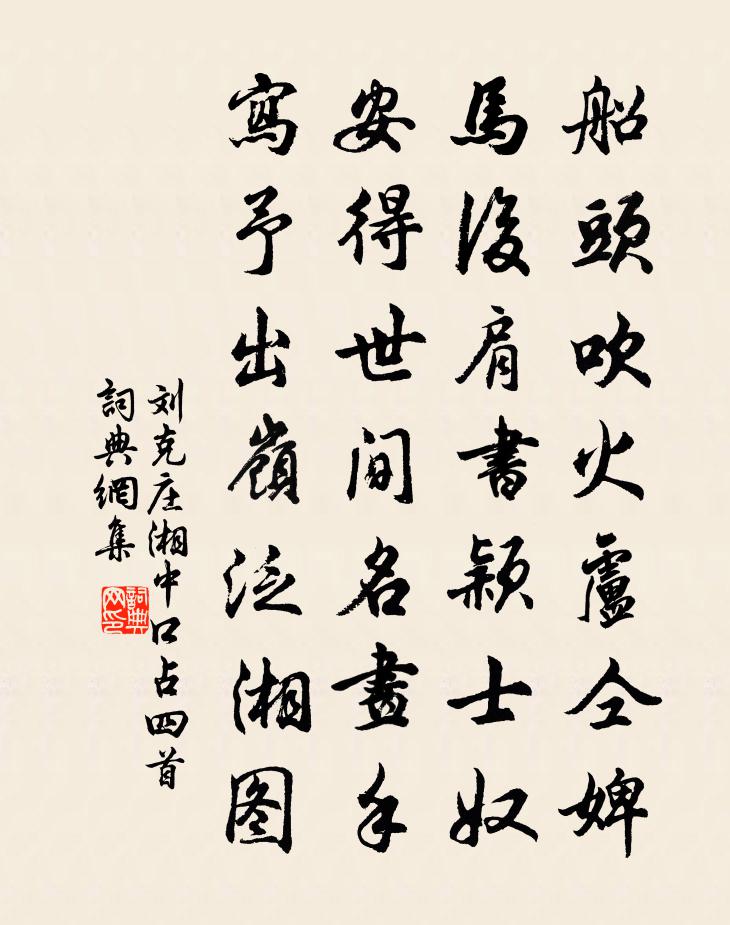 船頭吹火盧仝婢
馬後肩書穎士奴
安得世间名畫手
寫予出嶺泛湘图
刘克庄湘中口占四首
詞典網集
詞典网印